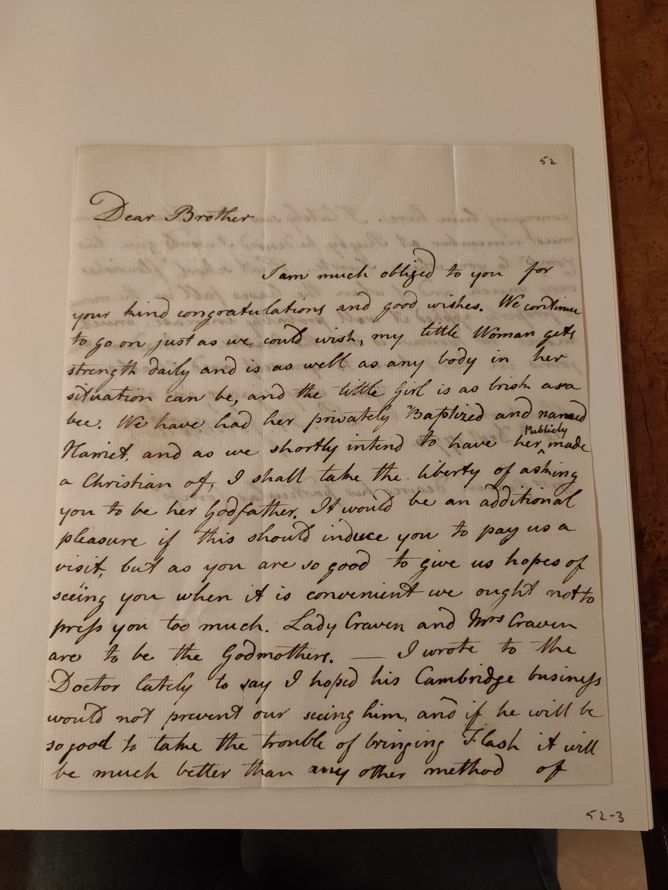 52
Dear Brother
I am much obliged to you for
your kind congratulations and good wishes. We continue
to go on just as we could wish, my little Woman gets
strength daily and is as well as any body in her
situation can be, and the little Girl is as brisk as a
bee. We have had her privately Baptized and named
Harriet, and as we shortly intend to have her Publicly made
a Christian of, I shall take the liberty of asking
you to be her Godfather. It would be an additional
pleasure if this should induce you to pay us a
visit, but as you are so good to give us hopes of
seeing you when it is convenient we ought not to
press you too much. Lady Craven and Mrs Craven
are to be the Godmothers. — I wrote to the
Doctor lately to say I hoped his Cambridge business
would not prevent our seeing him, and if he will be
so good to take the trouble of bringing Flash it will
be much better than any other method of
52-3